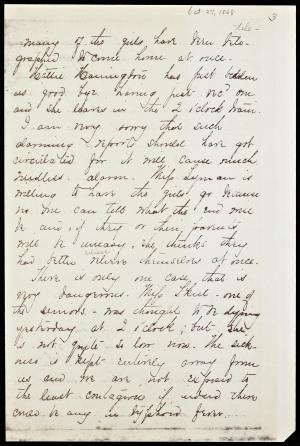 Oct 27, 1868
3
tele-
many of the girls have been tele-
graphed to come home at once.
Kittie Hannington has just bidden
us good bye having just rec'd one
and she leaves in the 2 o'clock train.
I am very sorry that such
alarming reports should have got
circulated for it will cause much
needless alarm. Miss Lyman is
willing to have the girls go because
no one can tell what the end will
be and if they or their parents
will be uneasy, she thinks they
had better relieve themselves at once.
There is only one case, that is
very dangerous. Miss Skeel - one of
the seniors - was thought to be dying
yesterday at 2 o'clock; but she
is not quite so low now. The sick-
ness is kept entirely away from
us and we are not exposed to
the least contagion if indeed there
could be any in typhoid fever.